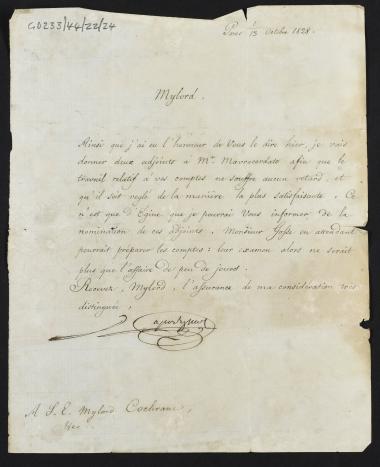 GD233/44/22/24
1/13 Octobre 1828.
Mylord.
Ainsi que j'ai eu l'honneur de Vous le dire hier, je vais
donner deux adjoints à Mr. Mavrocordato afin que le
travail relatif à vos comptes ne souffre aucun retard, et
qu'il soit reglé de la manière la plus satisfaisante. Ce
n'est que d'Egine que je pourrai Vous informer de la
nomination de ces adjoints. Monsieur en attendant
pourrait préparer les comptes: leur examen alors ne serait
plus que l'affaire de peu de jours.
Recevez, Mylord, l'assurance de ma considération très
distinguée,
A S. E. Mylord Cochrane,